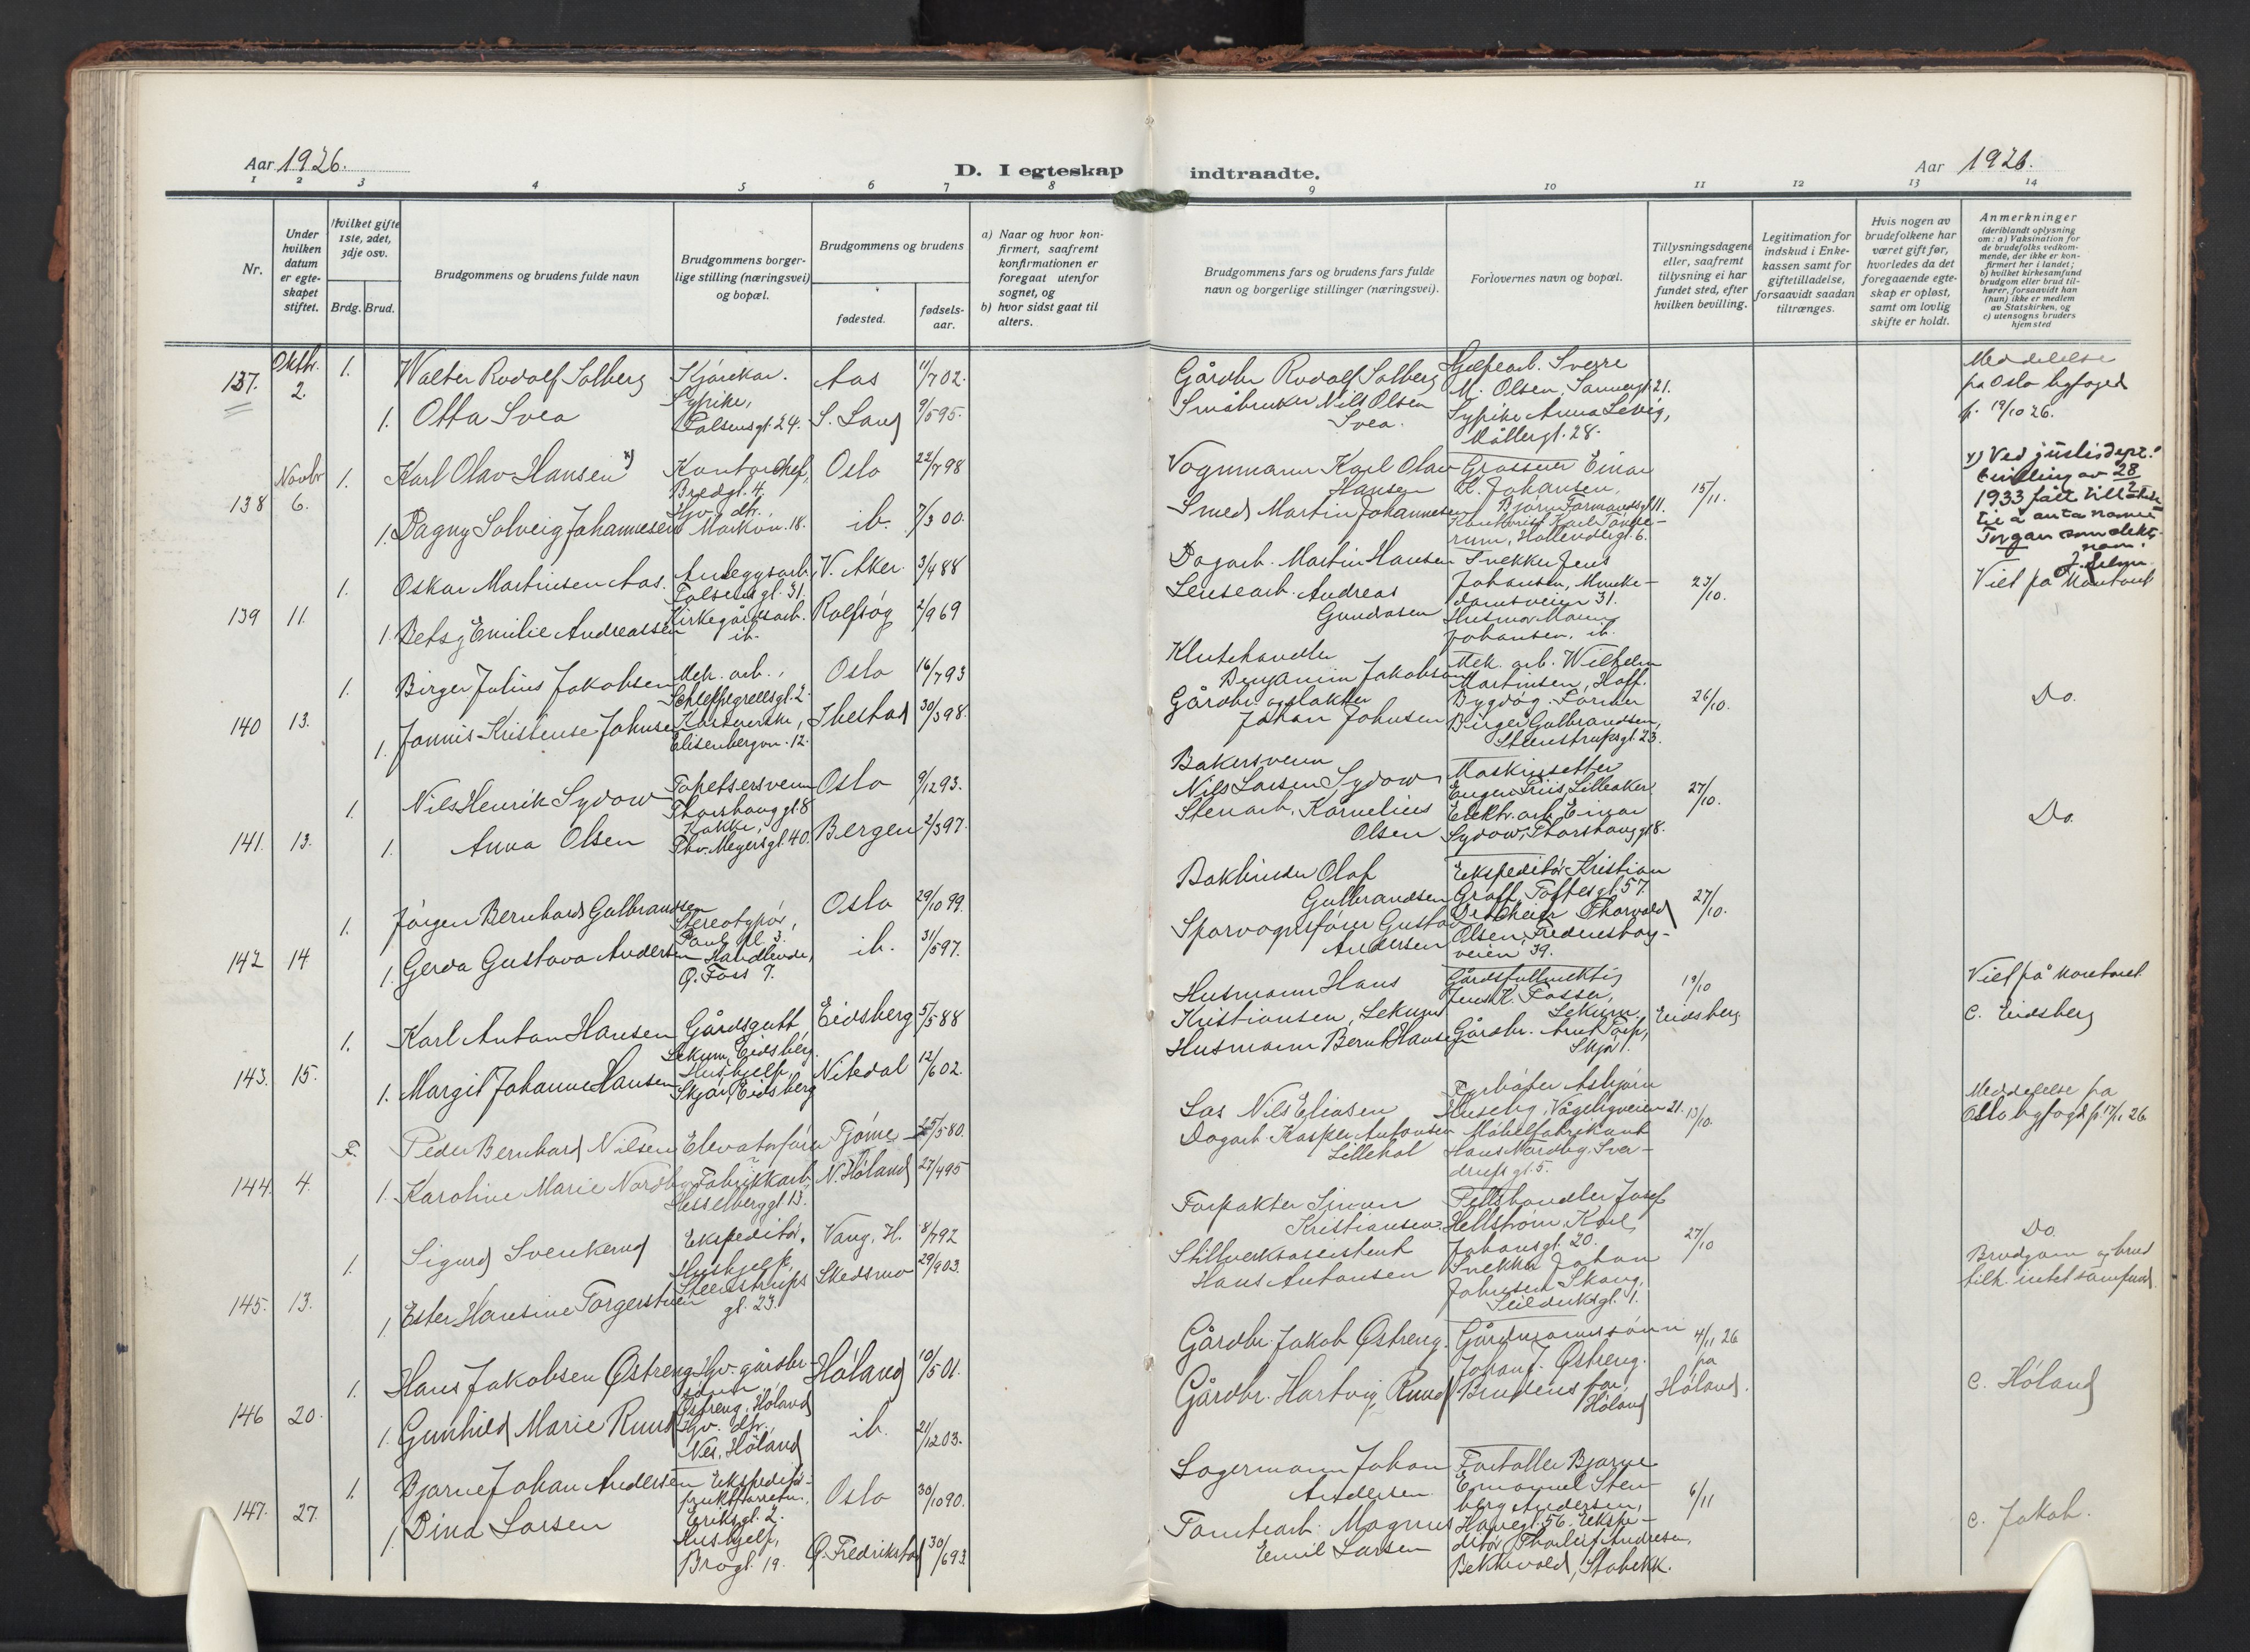 Aar 1926.
D. I egteskap indtraadte.
Aar 1926.
1 2 3 4 5 6 7 8 9 10 11 12 13 14
Nr.
Under hvilken datum er egteskapet stiftet.
Hvilket gifte 1ste, 2det, 3dje osv.
Brdg. Brud.
Brudgommens og brudens fulde navn
Brudgommens borgerlige stilling (næringsvei) og bopæl.
Brudgommens og brudens
fødested.
fødselsaar.
a) Naar og hvor konfirmert, saafremt konfirmationen er foregaat utenfor sognet, og
b) hvor sidst gaat til alters.
Brudgommens fars og brudens fars fulde navn og borgerlige stillinger (næringsvei).
Forlovernes navn og bopæl.
Tillysningsdagene eller, saafremt tillysning ei har fundet sted, efter hvilken bevilling.
Legitimation for indskud i Enkekassen samt for giftetilladelse, forsaavidt saadan tiltrænges.
Hvis nogen av brudefolkene har været gift før, hvorledes da det foregaaende egteskap er opløst, samt om lovlig skifte er holdt.
Anmerkninger
(deriblandt oplysning om: a) Vaksination for de brudefolks vedkommende, der ikke er konfirmert her i landet; b) hvilket kirkesamfund brudgom eller brud tilhører, forsaavidt han (hun) ikke er medlem av Statskirken, og c) utensogns bruders hjemsted
137. Oktbr. 2. 1. Walter Rudolf Solberg Kjørekar. Aas 11/7 02. Gårdbr Rudolf Solberg Hjelpearb. Sverre M. Olsen, Sannergt. 21. Meddelelse fra Oslo byfoged
1. Otta Svea Sypike, Falsensgt. 24. S. Land 9/5 95. Småbruker Nils Olsen Svea. Sypike Anna Lévig, Møllergt. 28. 19/10 26.
138 Novbr 6. 1. Karl Olav Hansen x) Kontorchef, Bredgt. 4. Oslo 22/7 98 Vognmann Karl Olav Hansen Grosserer Einar K. Johansen, Bjørn Farmandsgt 11. 15/11. x) Ved justisdept. bevilling av 28 1933 fått tillatelse til å anta navnet Torgan som slektsnavn.
1. Dagny Solveig Johannesen Hjv. dtr. Markvn. 18. ib. 7/3 00. Smed Martin Johannesen
139 11. 1. Oskar Martinsen Aas. Anleggsarb. Falsensgt. 31. V. Aker. 3/4 88 Dagarb. Martin Hansen Snekker Jens Johansen, Munkedamsveien 31. 23/10. Viet på kontoret
1. Betsy Emilie Andreassen Kirkegårdsarb. ib. Rolfsøy 2/9 69 Lensearb. Andreas Gundasen Husmor Johansen, ib.
140 13. 1. Birger Julius Jakobsen Mek. arb., Schleppegrellsgt. 2 Oslo 16/7 93 Klutehandler Benjamin Jakobsen Mek. arb. Wilhelm Martinsen, Hoff. Bygdøy. 26/10. Do.
1. Jonnis Kristense Johnsen Elisenbergvn. 12. Ibestad 30/3 98. Gårdbr. og slakter Johan Johnsen Birger Gulbrandsen, Steenstrupsgt. 23.
141. 13. 1. Nils Henrik Sydow Tapetsersvenn Thorshauggt 8 Oslo 9/12 93. Bakersvenn Nils Larsen Sydow Maskinsetter Eugen Friis, Lilleaker 27/10. Do.
1. Anna Olsen Kokke, Thv. Meyersgt. 40. Bergen 2/3 97. Stenarb. Kornelius Olsen Elektr. arb. Einar Sydow, Thorshauggt 8.
142 14 1. Jørgen Bernhard Gulbrandsen Stereotypør, Pauls pl. 3. Oslo 29/10 99. Bokbinder Olaf Gulbrandsen Ekspeditør Kristian Graff, Toftesgt. 57. 27/10.
1. Gerda Gustava Andersen Handlende, Ø. Foss 7. ib. 31/5 97. Sporvognsfører Gustav Andersen Thorvald Olsen, Fredensborgveien 39.
143. 15. 1. Karl Anton Hansen Gårdsgutt, Lekum, Eidsberg. Eidsberg 5/5 88 Husmann Hans Kristiansen, Lekum Gårdsfullmektig Jens K. Fosser, Lekum. 19/10 Eidsberg. Viet på kontoret. c. Eidsberg
1. Margit Johanne Hansen Hushjelp, Skjør, Eidsberg Nitedal 12/6 02. Husmann Bernt Hansen Gårdbr. Arnt Torp, Skjør 1.
144. 4. F. Peder Bernhard Nilsen Elevatorfører Tjøme 25/5 80. Los Nils Eliasen Fyrbøter Asbjørn Huseby, Vågebyveien 21. 13/10. Meddelelse fra Oslo byfogd p. 17/11 26
1. Karoline Marie Nordby Fabrikkarb. Hesselberggt 13. N. Høland 27/4 95 Dagarb. Kasper Antonsen Lillehol Møbelfabrikant Hans Nordby, Sverdrups gt. 5.
145. 13. 1. Sigurd Svenkerud Ekspeditør. Vang, H. 8/7 92 Forpakter Simen Kristiansen. Pelshandler Josef Hellstrøm Karl Johansgt. 20. 27/10 Do. Brudgom og brud tilh. intet samfund.
1. Ester Hansine Torgerstuen Hushjelp, Steenstrups gt. 23. Skedsmo 29/9 03. Stillverksassistent Hans Antonsen Snekker Johan Johnsen Skaug, Seilduksgt. 1.
146 20. 1. Hans Jakobsen Østreng Hjv. gårdbr. sønn, Østreng, Høland Høland 10/5 01. Gårdbr. Jakob Østreng. Gårdmannssønn Johan J. Østreng. 4/11 26 på Høland. c. Høland
1. Gunhild Marie Ruud Hjv. dtr., Nes, Høland ib. 21/12 03. Gårdbr. Hartvig Ruud Brudens far, Høland
147. 27. 1. Bjarne Johan Andersen Ekspeditør fruktforretn., Eriksgt. 2. Oslo 30/10 90. Lagermann Johan Andersen Bjarne Emanuel Stenberg Andersen, Havegt. 56. 6/11 c. Jakob.
1. Dina Larsen Hushjelp, Brogt. 19. Ø. Fredrikstad 30/6 93 Tomtearb. Magnus Emil Larsen Ekspeditør Thorleif Andresen, Bekkevold, Stabekk.